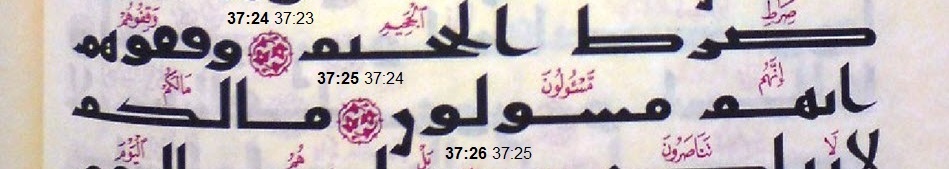 صِرَٰطِ ٱلْجَحِيمِ وَقِفُوهُمْ
37:24 37:23
صرط الجحيم وقفوهم
إِنَّهُم مَّسْـُٔولُونَ مَا لَكُمْ
37:25 37:24
انهم مسولون مالكم
لَا تَنَاصَرُونَ بَلْ هُمُ ٱلْيَوْمَ
37:26 37:25